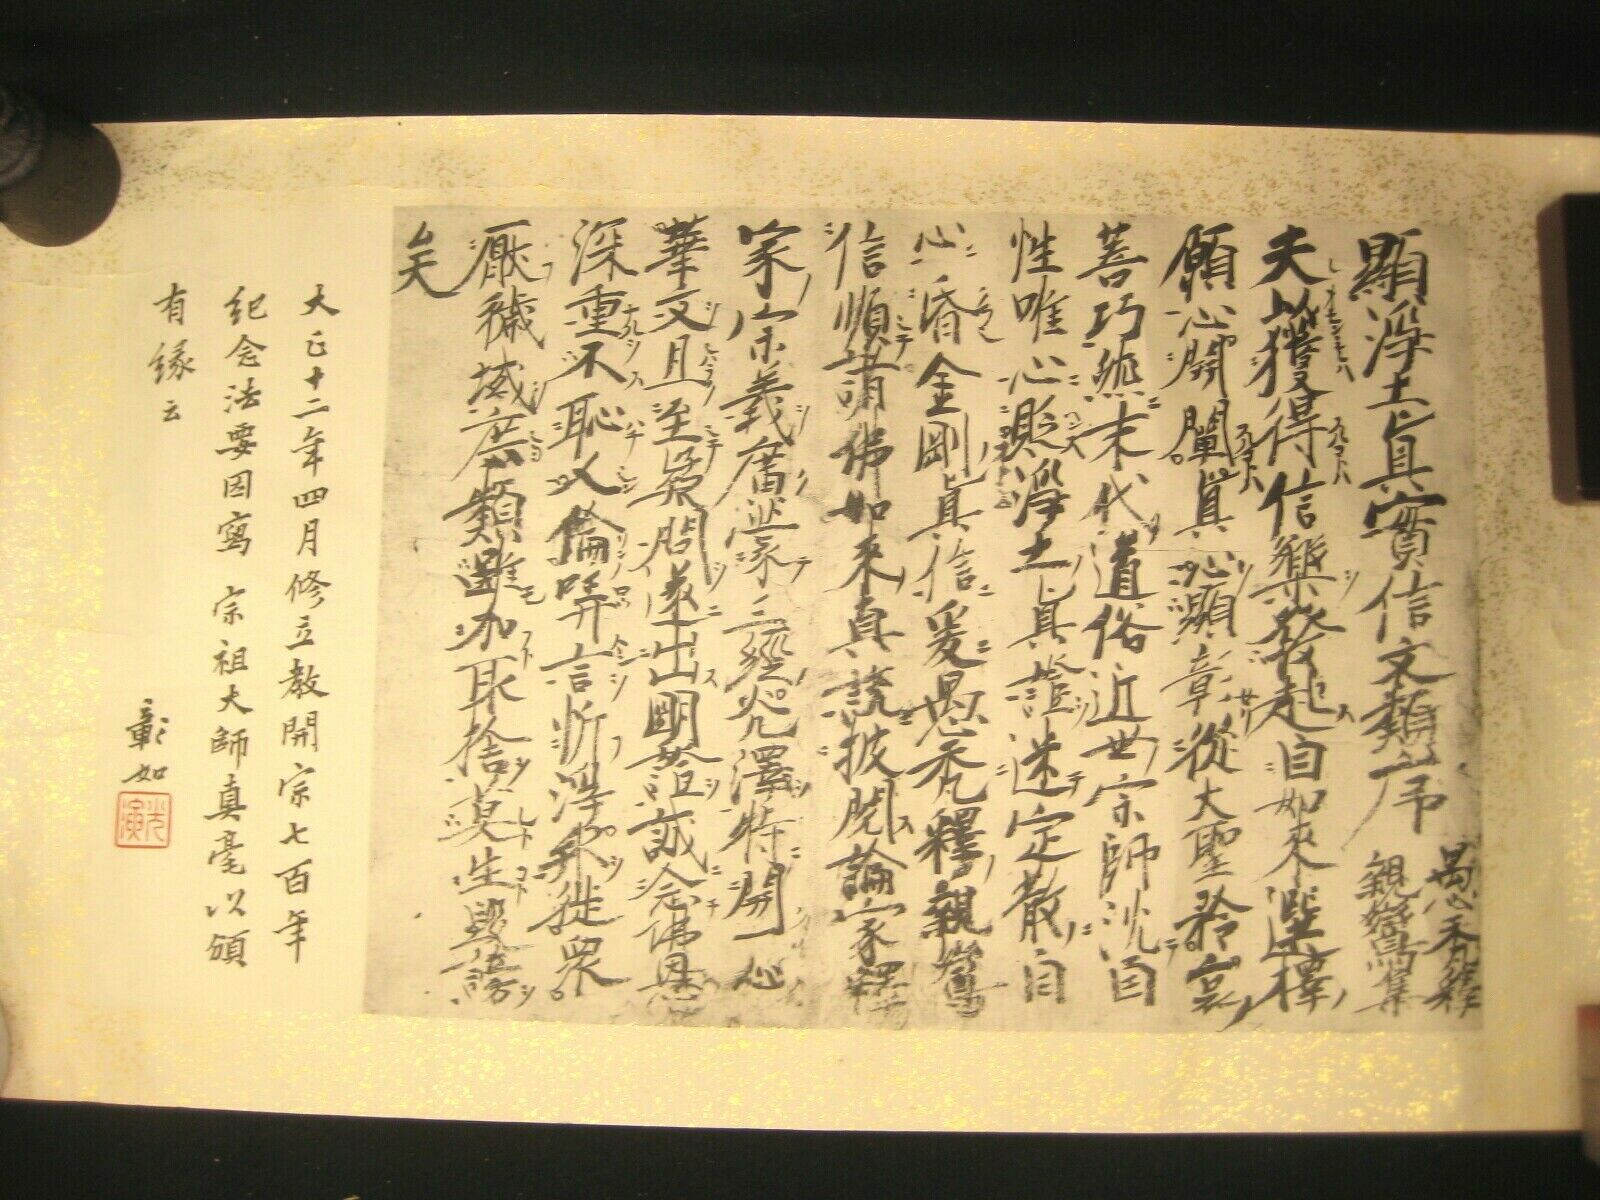 顯淨土眞實信文類序
愚禿釋
親鸞集
夫以獲得信樂發起自如來選擇
願心開闡眞心顯彰從大聖矜哀
善巧然末代道俗近世宗師沈自
性唯心貶淨土眞證迷定散自
心昏金剛眞信爰愚禿釋親鸞
信順諸佛如來眞說披閱論家釋
家宗義廣蒙三經光澤特開一心
華文且至疑問遂出明證誠念佛恩
深重不恥人倫哢言忻淨邦徒衆
厭穢域庶類雖加取捨莫生毀謗
矣
大正十二年四月修立教開宗七百年
紀念法要因寫 宗祖大師真毫以頒
有緣云
彰如